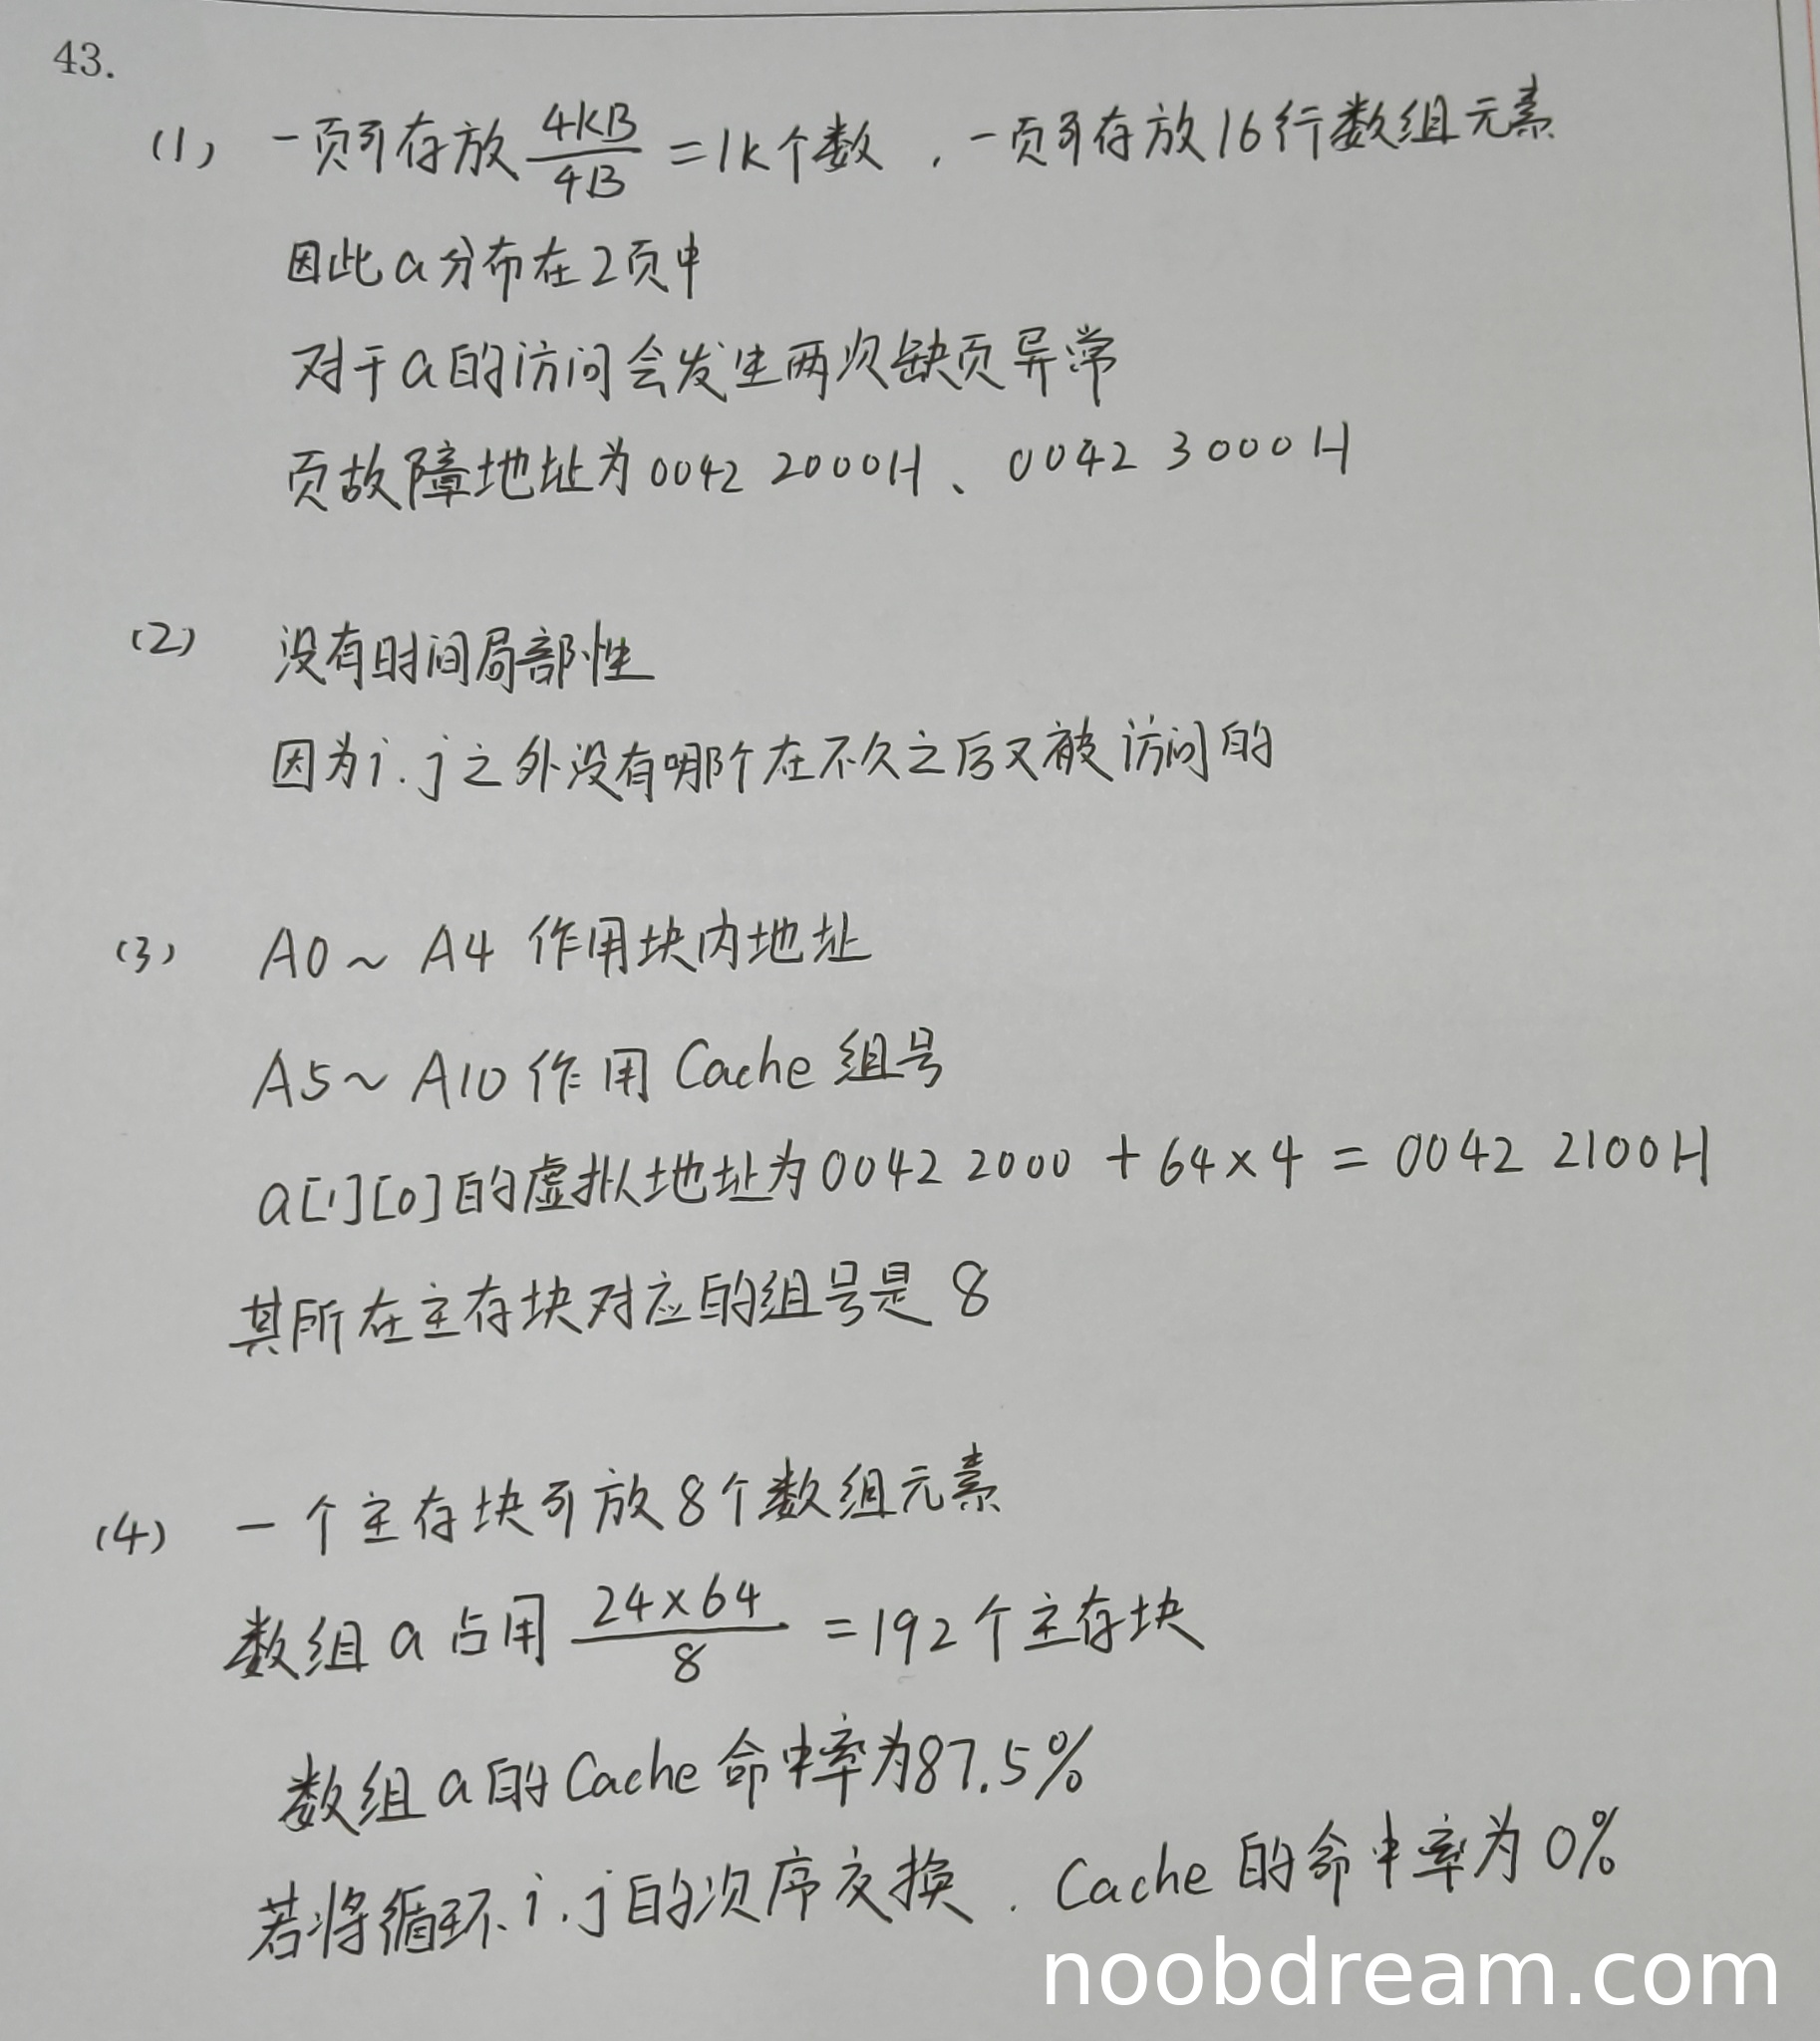 43.
(1) 一页可存放 4KB/4B = 1K个数，一页可存放16行数组元素
因此a分布在2页中
对于a的访问会发生两次缺页异常
页故障地址为0042 2000H、0042 3000H
(2) 没有时间局部性
因为i.j之外没有哪个在不久之后又被访问的
(3) A0~A4 作用块内地址
A5~A10作用Cache组号
a[1][0]的虚拟地址为0042 2000 + 64×4 = 0042 2100H
其所在主存块对应的组号是 8
(4) 一个主存块可放8个数组元素
数组a占用 24×64/8 = 192个主存块
数组a的Cache命中率为87.5%
若将循环i.j的次序交换．Cache的命中率为0%
noobdream.com